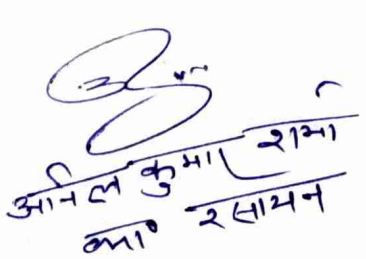 अनिल कुमार शर्मा
व्या० रसायन